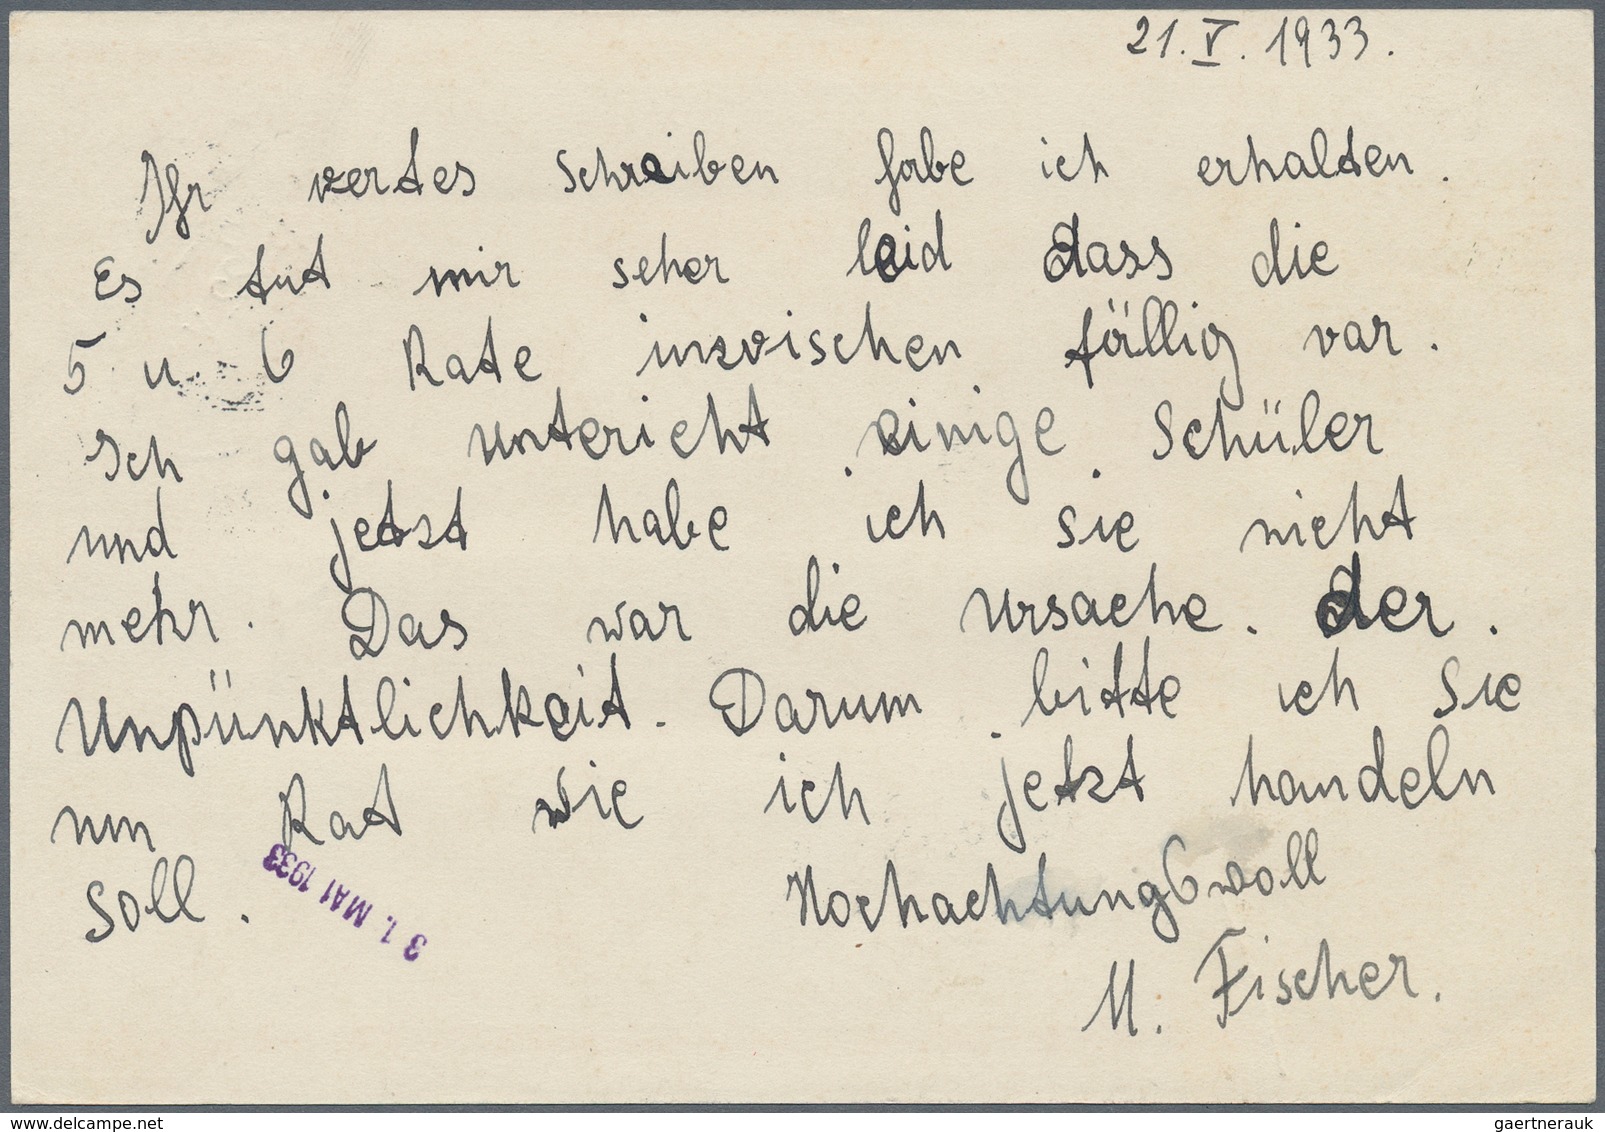 21. V. 1933.
Ihr vertes schreiben habe ich erhalten.
Es tut mir seher leid dass die
5 u 6 Rate inzvischen fällig var.
Ich gab unterricht einige Schüler
und jetzt habe ich sie nicht
mehr. Das war die Ursache. der.
Unpünktlichkeit. Darum bitte ich Sie
um Rat wie ich jetzt handeln
soll.
31. MAI 1933
Hochachtungsvoll
M. Fischer.
www.delcampe.net
gaertnerauk